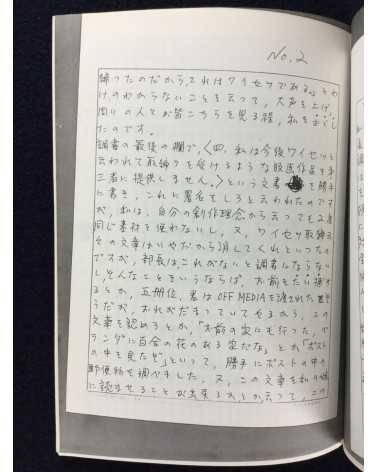 No.2
帰ったのだから、これはワイセツであるとや
けのわからないことを云って、大声を上げ
周りの人とお皆こちらを見る程、私をおどし
たのです。
調書の最後の欄で、〈四、私は今後ワイセツと
云われて取締りを受けるような版画作品を第
三者に提供しません。〉という文書を勝手
に書き、これに署名をしろと云われたのです
が、私は、自分の創作理念から云っても2度
同じ素材を使わないし、又、ワイセツ取締云
々の文章はいやだから消してくれといったの
ですが、部長は、これがないと調書にならない
し、そんなことをいうならば、お前をたい捕す
るとか、五冊位、君はOFF MEDIAを渡された
うだが、おれがだまっていてやるから、この
文章を認めろとか、「お前の家にも行った、ベ
ランダに百合の花のある家だな」とか「ポスト
の中を見たぞ」といって、勝手にポストの中の
郵便物を調べました。又、この文章を私の
に認ませることが出来るぞとか云って、この